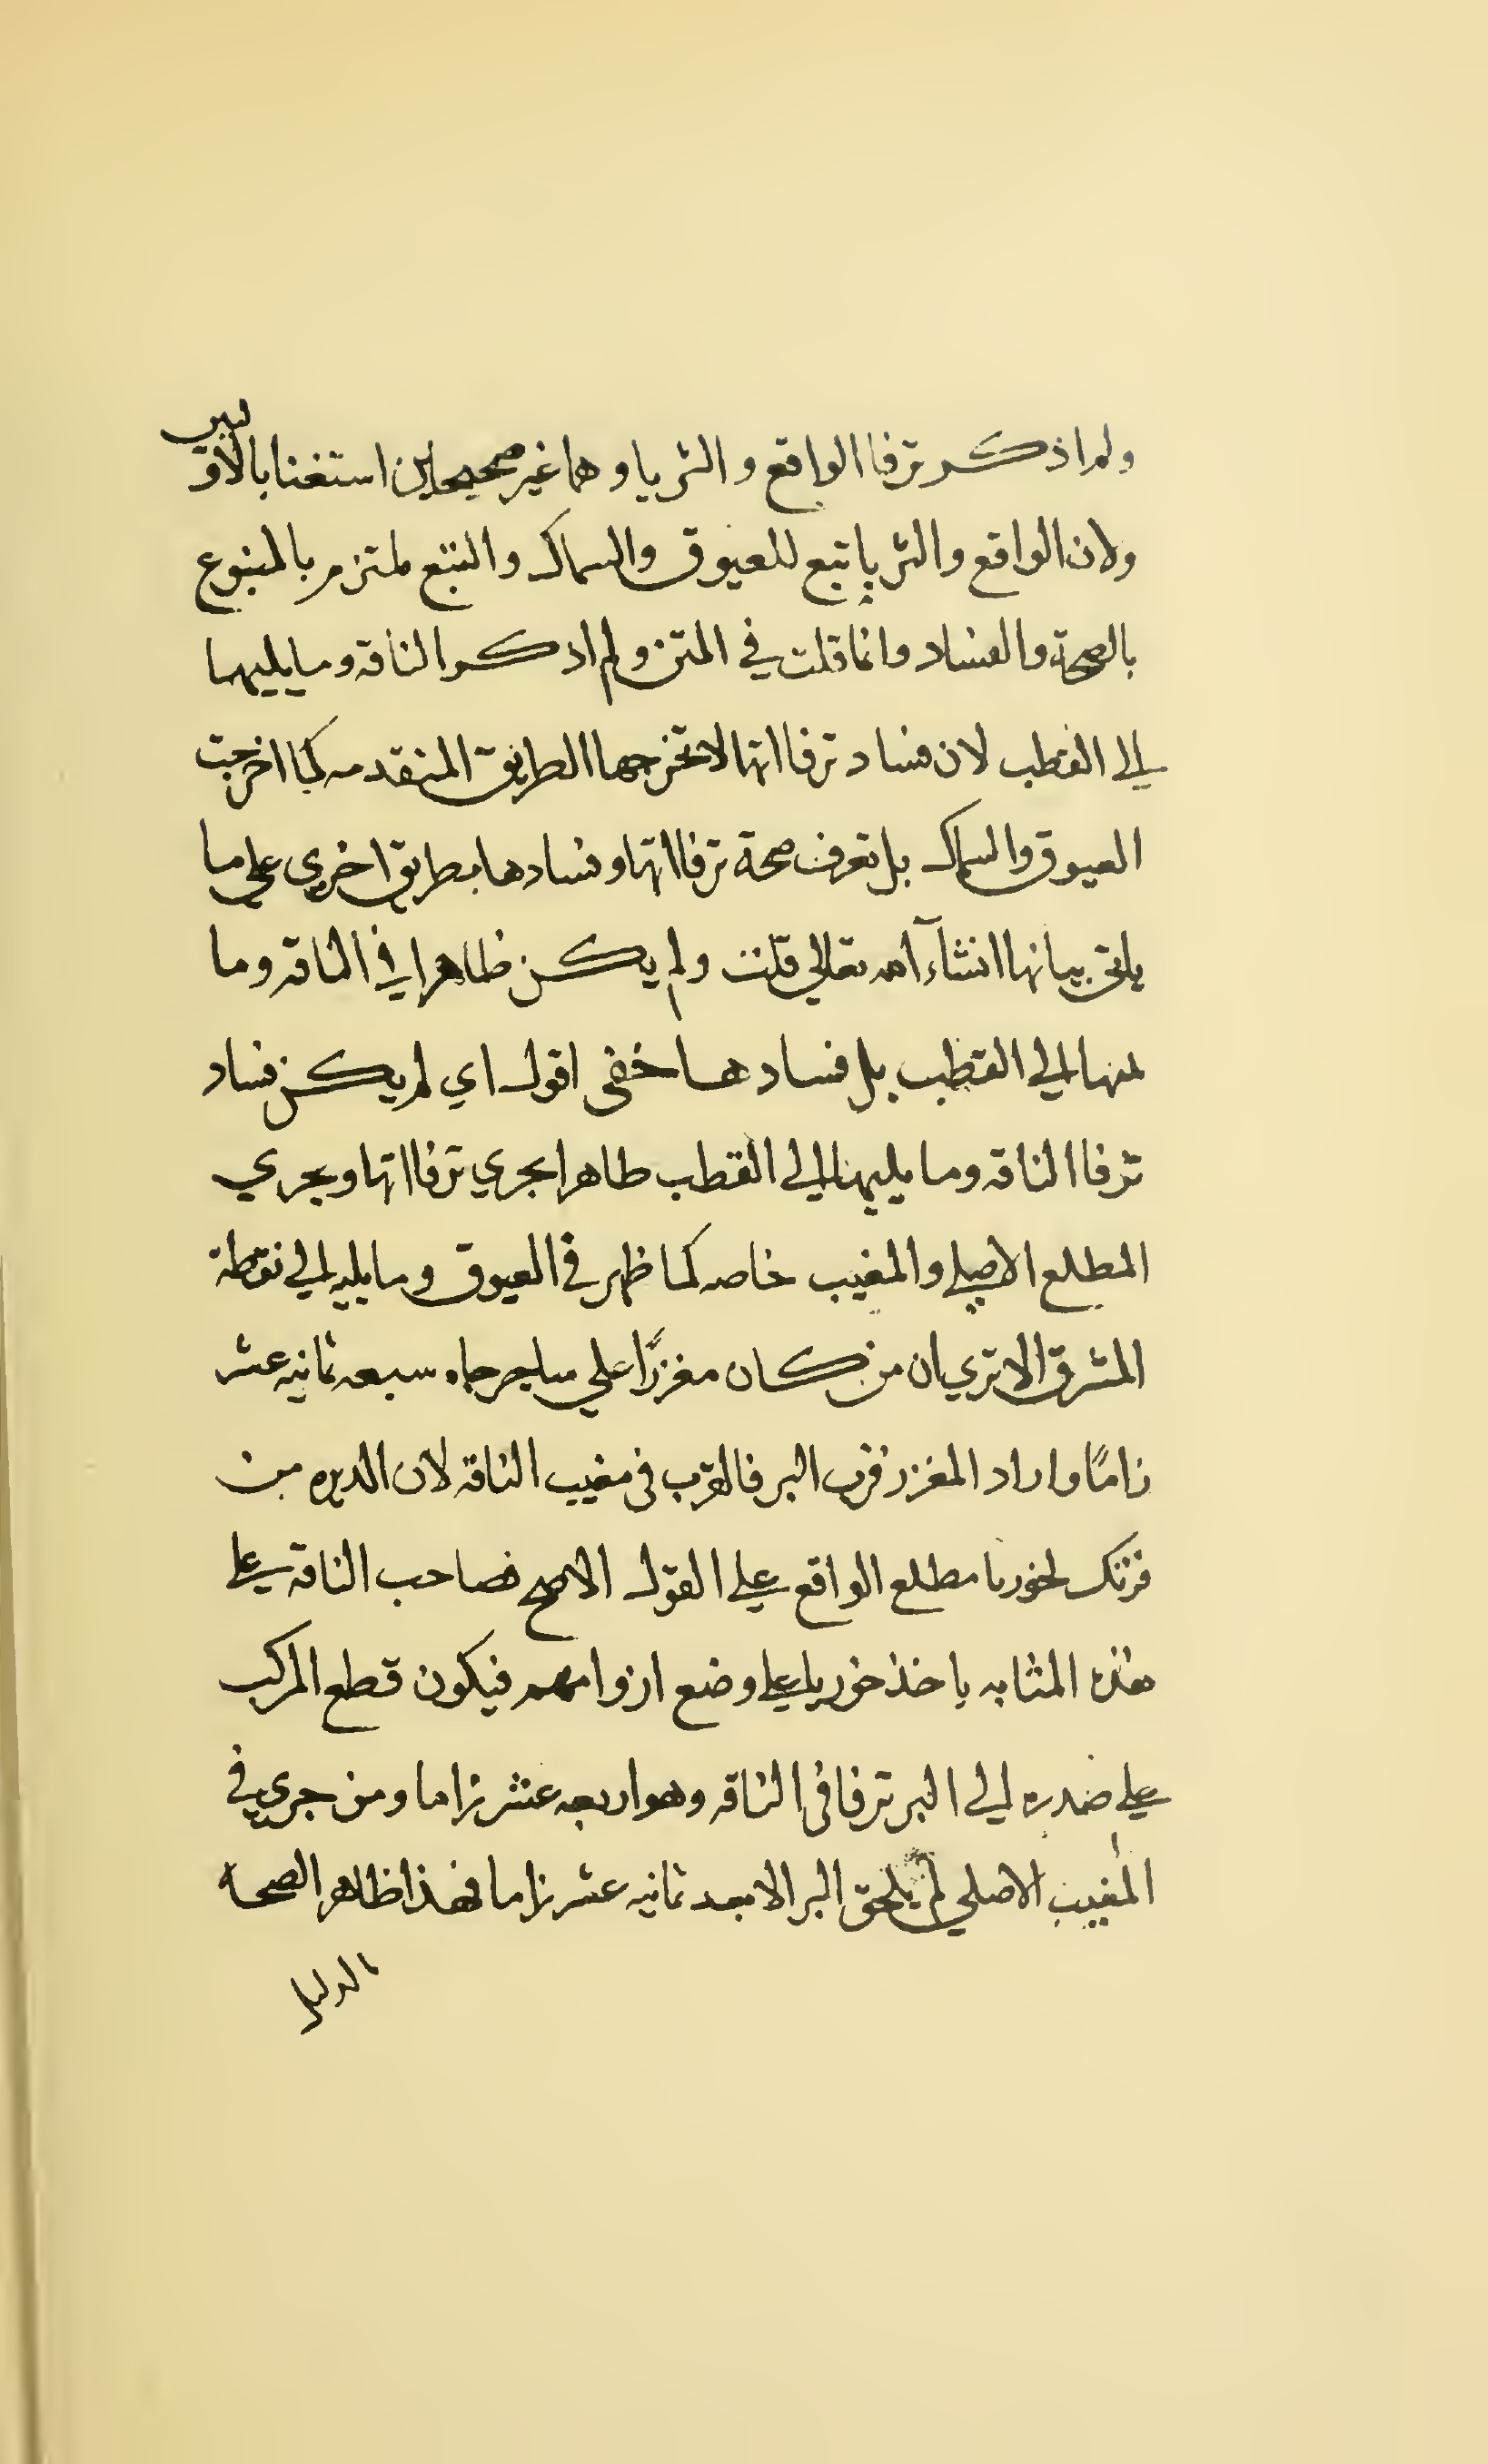 ولم اذكر ترفا الواقع والثريا وهما غير صحيحين استغنا بالاولين
ولان الواقع والثريا تبع للعيوق والسماك والتبع ملتزم بالمتبوع
بالصحة والفساد وانما قلت في المتن ولم اذكر الناقه وما يليهما
الي القطب لان فساد ترفااتها لا تخرجها الطريق المتقدمه كما اخرجت
العيوق والسماك بل تعرف صحة ترفااتها وفسادها بطريق اخري علي ما
ياتي بيانها انشآء الله تعالي قلت ولم يكن ظاهرا في الناقه وما
منها الي القطب بل فسادها خفي اقول اي لم يكن فساد
ترفا الناقه وما يليها الي القطب ظاهرا بجري ترفااتها وبجري
المطلع الاصلي والمغيب خاصه كما ظهر في العيوق وما يليه الي نقطة
المشرق الا تري ان من كان مغزرًا علي ساجر جاه سبعه ثمانيه عشر
زامًا واراد المغزر قرب البر فالقرب في مغيب الناقه لان الديره من
فرتك لخوريا مطلع الواقع علي القول الاصح فصاحب الناقه علي
هذه المثابه ياخذ خوريا علي وضع ازوامهم فيكون قطع المركب
علي ضدره الي البر ترفا في الناقه وهو اربعه عشر زاما ومن جري في
المغيب الاصلي لم يلحق البر الا بعد ثمانيه عشر زاما فهذا ظاهر الصحه
الدليل